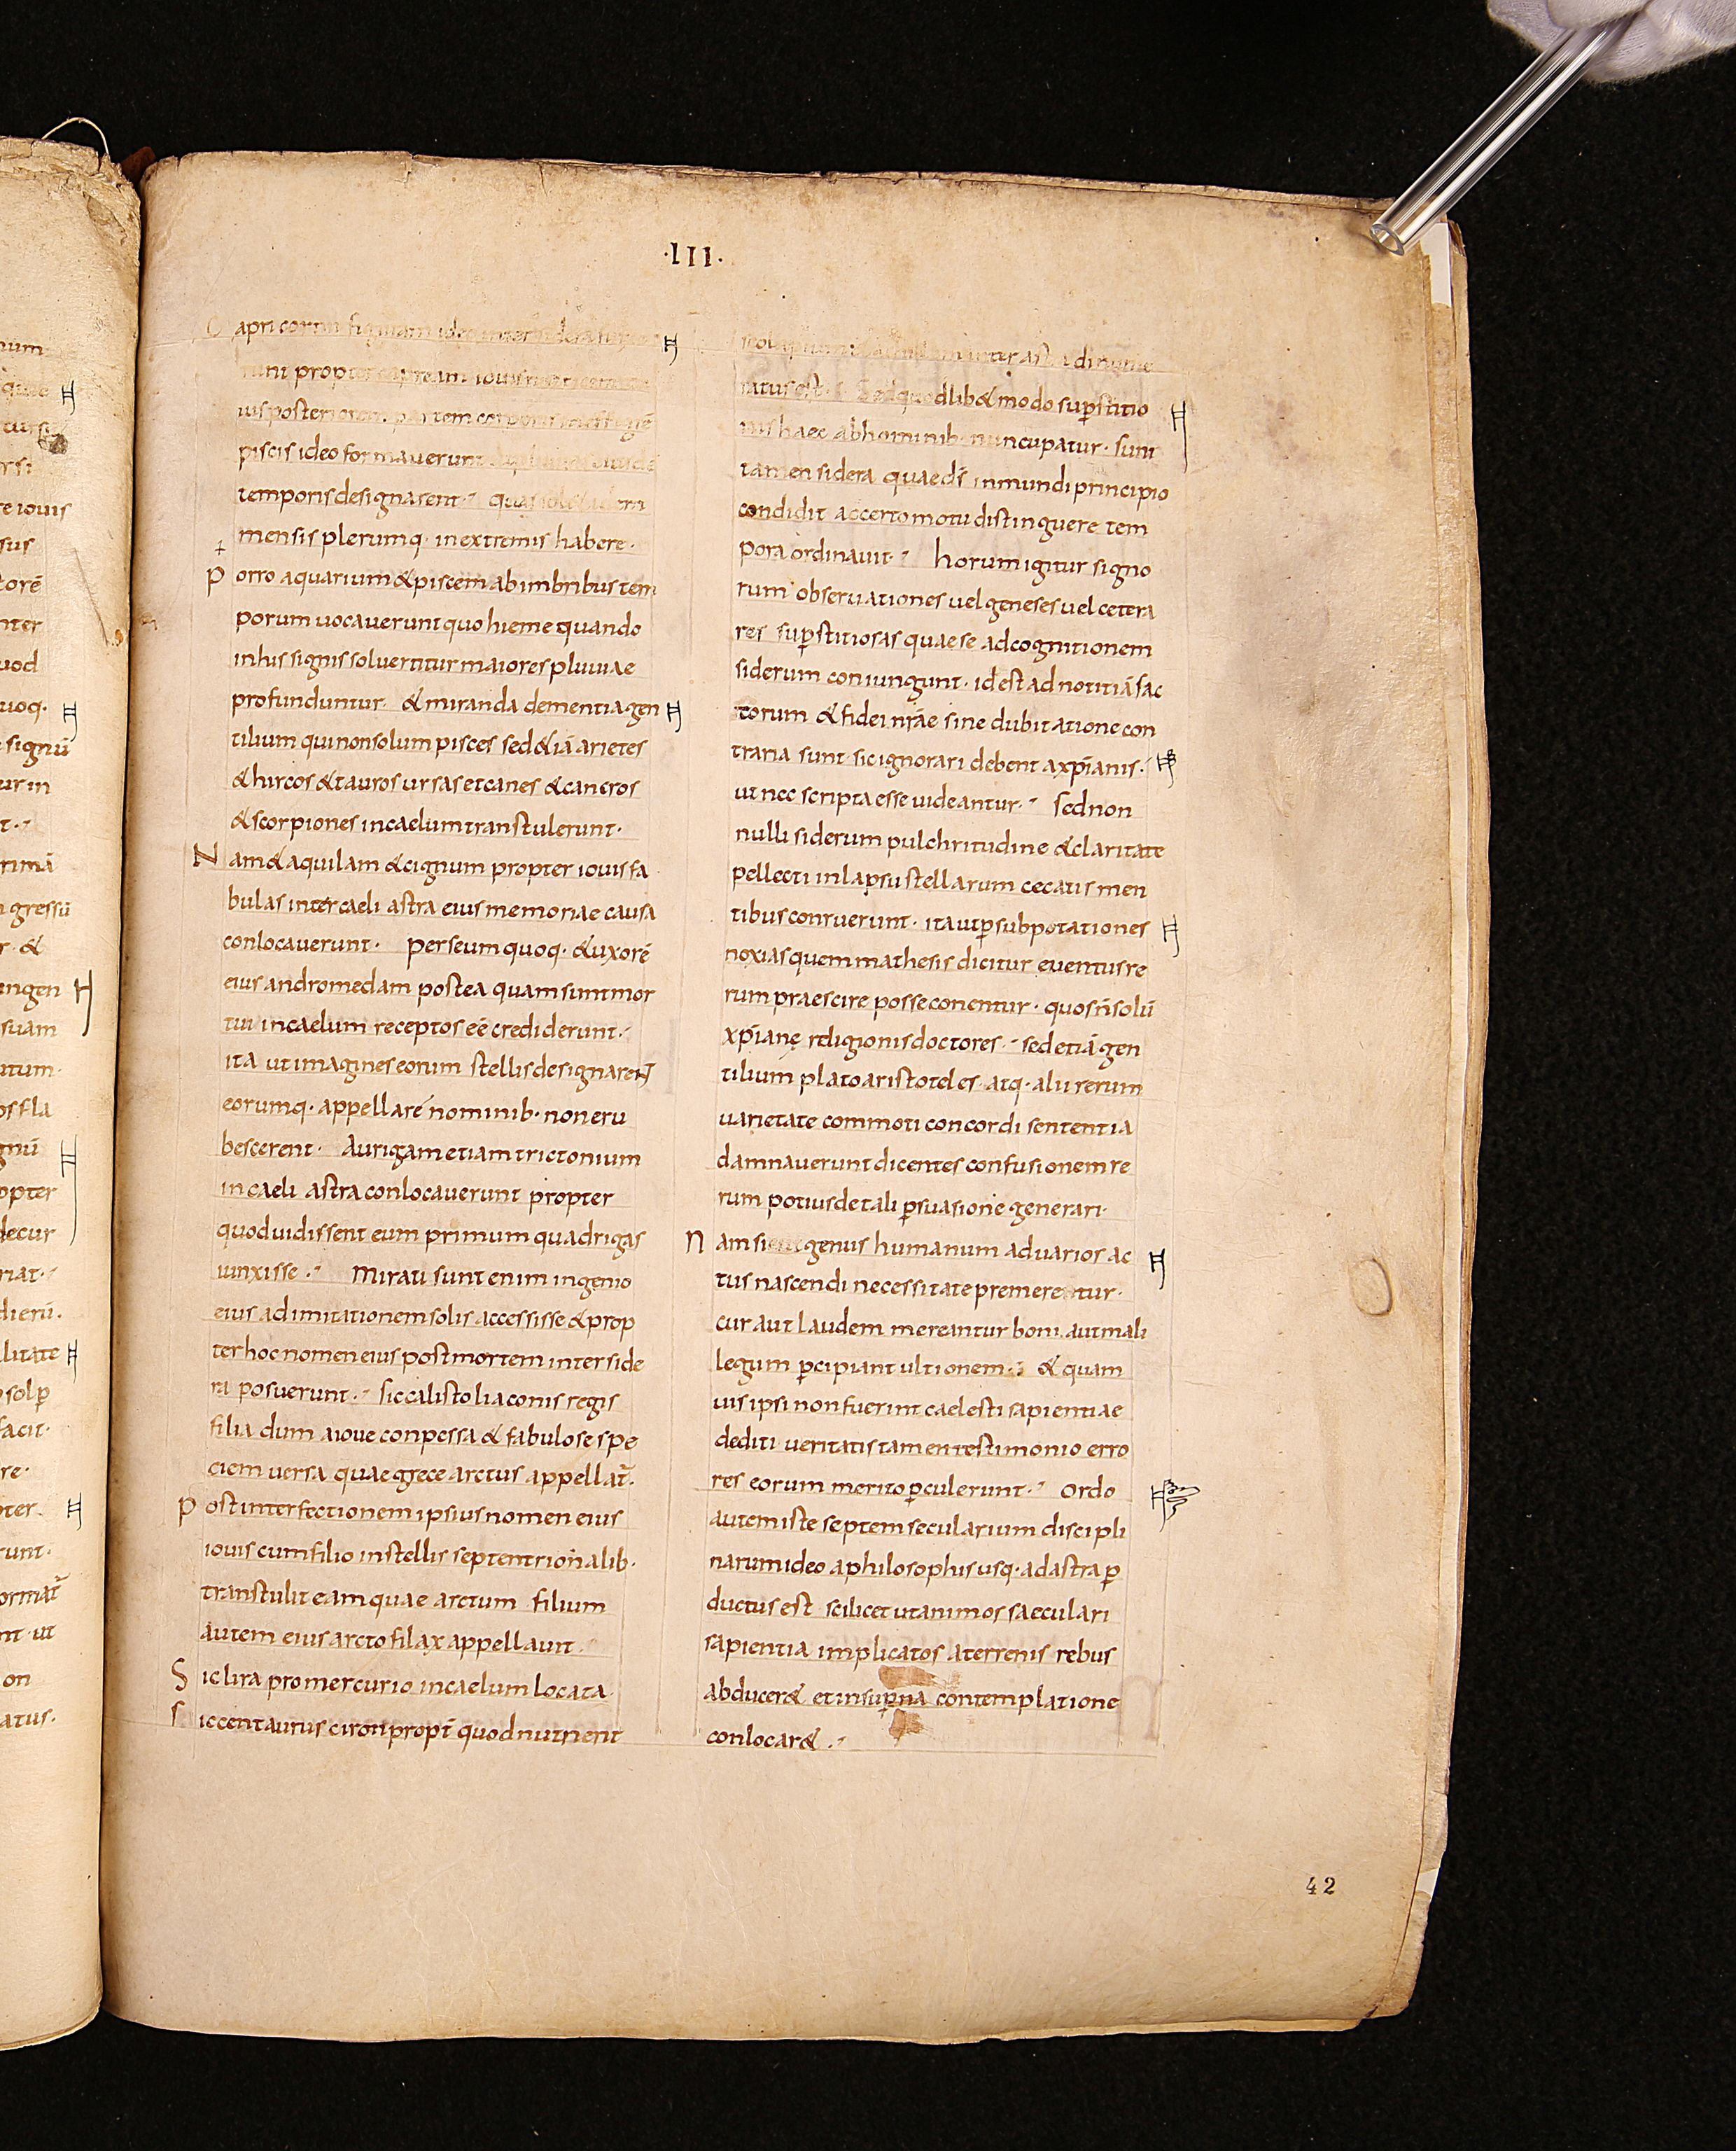 ·III·
Capri corni figuram ideo inter sidera
propter capream iouis
uis posteriorem partem corporis
piscis ideo formauerunt
temporis designarent·
mensis plerumq· in extremis habere·
Porro aquarium & piscem ab imbribus tem
porum uocauerunt quo hieme quando
in his signis sol uertitur maiores pluuiae
profunduntur· & miranda dementia gen
tilium qui non solum pisces sed &iā arietes
& hircos & tauros ursas et canes & cancros
& scorpiones in caelum transtulerunt·
Nam & aquilam & cignum propter iouis fa
bulas inter caeli astra eius memoriae causa
conlocauerunt· perseum quoq· & uxorē
eius andromedam postea quam sunt mor
tui in caelum receptos eē crediderunt·
ita ut imagines eorum stellis designarent
eorumq· appellare nominib· non eru
bescerent· Aurigam etiam trictonium
in caeli astra conlocauerunt propter
quod uidissent eum primum quadrigas
iunxisse· Mirati sunt enim ingenio
eius ad imitationem solis accessisse & prop
ter hoc nomen eius post mortem inter side
ra posuerunt· sic calisto liaconis regis
filia dum a ioue conpessa & fabulose spe
ciem uersa quae grece arctus appellat̄·
Post interfectionem ipsius nomen eius
iouis cum filio in stellis septentrionalib·
transtulit eam quae arctum filium
autem eius arcto filax appellaunt·
Sic lira pro mercurio in caelum locata·
Sic centaurus ciron propt̄ quod nutrient
inter astra dinume
ratus est· Sed quodlib& modo sup̱stitio
nis haec ab hominib· nuncupatur· sunt
tamen sidera quae ds̄ in mundi principio
condidit ac certo motu distinguere tem
pora ordinauit· horum igitur signo
rum obseruationes uel geneses uel cetera
res sup̱stitiosas quae se ad cognitionem
siderum coniungunt· id est ad notitiā fac
torum & fidei nr̄ae sine dubitatione con
traria sunt· sic ignorari debent a xp̄ianis·
ut nec scripta esse uideantur· sed non
nulli siderum pulchritudine & claritate
pellecti in lapsu stellarum cecatis men
tibus conruerunt· ita ut p̱ subpotationes
noxias quem mathesis dicitur euentus re
rum praescire posse conentur· quos n̄ solū
xp̄iane religionis doctores· sed etiā gen
tilium plato aristoteles atq· alii rerum
uarietate commoti concordi sententia
damnauerunt dicentes confusionem re
rum potius de tali p̱suasione generari·
Nam si genus humanum ad uarios ac
tus nascendi necessitate premerentur·
cur aut laudem mereantur boni aut mali
legum p̱cipiant ultionem· & quam
uis ipsi non fuerint caelesti sapientiae
dediti ueritatis tamen testimonio erro
res eorum merito p̱culerunt· Ordo
autem iste septem secularium discipli
narum ideo a philosophis usq· ad astra p̱
ductus est scilicet ut animos saeculari
sapientia implicatos a terrenis rebus
abducer& et in sup̱na contemplatione
conlocar&·
42